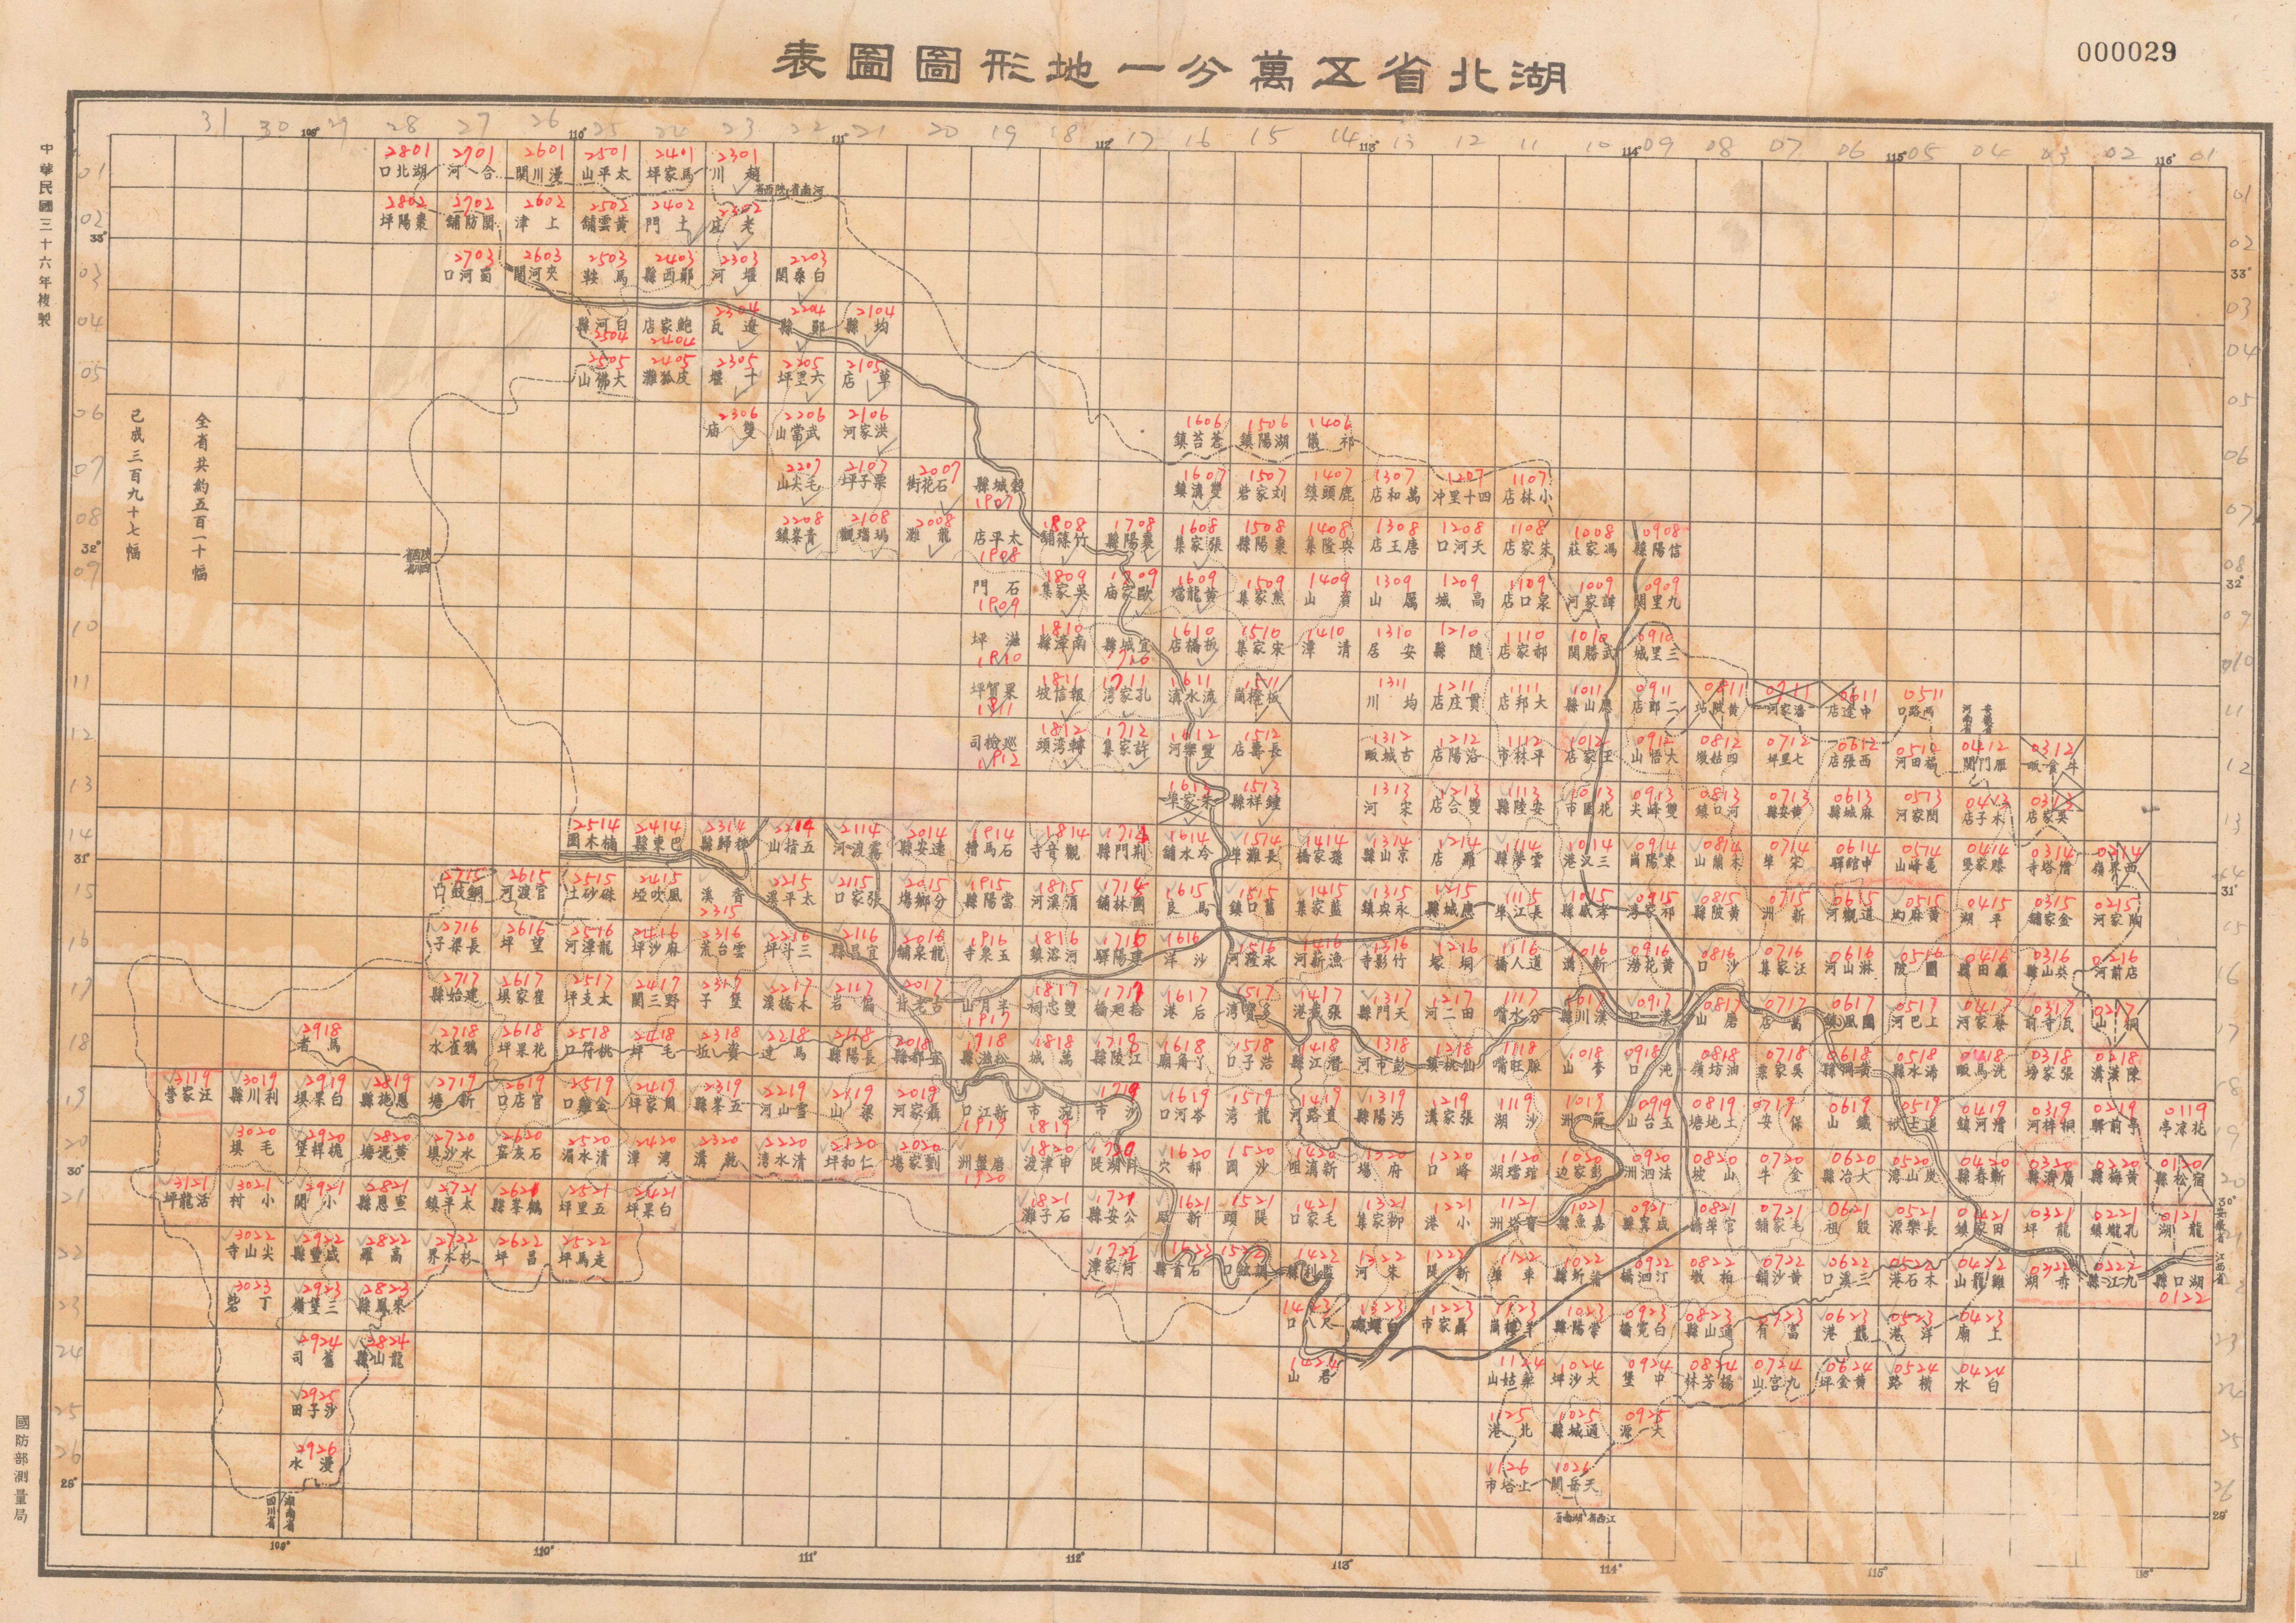 湖北省五萬分一地形圖圖表
000029
中華民國三十六年複製
全省共約五百一十幅
已成三百九十七幅
國防部測量局
31 30 29 28 27 26 25 24 23 22 21 20 19 18 17 16 15 14 13 12 11 10 09 08 07 06 05 04 03 02 01
109° 110° 111° 112° 113° 114° 115° 116°
2801 2701 2601 2501 2401 2301
湖北口 合河 漫川關 太平山 馬家坪 趙川
河南省 陝西省
2802 2702 2602 2502 2402 2302
棗陽坪 關防舖 上津 黃雲舖 土門 老庄
33°
2703 2603 2503 2403 2303 2203
蜀河口 夾河關 馬鞍 鄖西縣 堰河 白桑關
2304 2204 2104
白河縣 鮑家店 遼瓦 鄖縣 均縣
2504 2404
2505 2405 2305 2205 2105
大佛山 皮狐灘 十堰 六里坪 草店
2306 2206 2106 1606 1506 1406
雙庙 武當山 洪家河 蒼苔鎮 湖陽鎮 祁儀
2207 2107 2007 1607 1507 1407 1307 1207 1107
毛尖山 栗子坪 石花街 穀城縣 雙溝鎮 刘家岩 鹿頭鎮 萬和店 四十里冲 小林店
1907
2208 2108 2008 1808 1708 1608 1508 1408 1308 1208 1108 1008 0908
青峯鎮 瑪瑙觀 龍灘 太平店 竹篠舖 襄陽縣 張家集 棗陽縣 興隆集 唐王店 天河口 朱家店 馮家莊 信陽縣
1908
32°
1809 1709 1609 1509 1409 1309 1209 1109 1009 0909
石門 吳家集 歐家庙 黃龍壋 熊家集 資山 厲山 高城 泉口店 譚家河 九里關
1909
1810 1610 1510 1410 1310 1210 1110 1010 0910
滋坪 南漳縣 宜城縣 板橋店 宋家集 清潭 安居 隨縣 郝家店 武勝關 三里城
1910 1710
1811 1711 1611 1511 1311 1211 1111 1011 0911 0811 0711 0611 0511
果賀坪 報信坡 孔家湾 流水溝 板櫈崗 均川 貫庄店 大邦店 應山縣 二郎店 黃陂站 潘家河 中途店 兩路口
1911
1812 1712 1612 1512 1312 1212 1112 1012 0912 0812 0712 0612 0512 0412 0312
巡檢司 轉湾頭 許家集 豐樂河 長壽店 古城畈 洛陽店 平林市 王家店 大悟山 四姑墩 七里坪 西張店 福田河 雁門關 牛食畈
1912
1613 1513 1313 1213 1113 1013 0913 0813 0713 0613 0513 0413 0313
朱家埠 鍾祥縣 宋河 雙合店 安陸縣 花園市 雙峰尖 河口鎮 黃安縣 麻城縣 閔家河 木子店 吳家店
2514 2414 2314 2214 2114 2014 1914 1814 1714 1614 1514 1414 1314 1214 1114 1014 0914 0814 0714 0614 0514 0414 0314 0214
楠木園 巴東縣 秭歸縣 五指山 霧渡河 遠安縣 石馬槽 觀音寺 荆門縣 冷水舖 長灘埠 孫家橋 京山縣 羅店 雲夢縣 三汊港 東陽崗 木蘭山 宋埠 中館驛 龜峰山 滕家堡 僧塔寺 西界嶺
31°
2715 2615 2515 2415 2215 2115 2015 1915 1815 1714 1615 1515 1415 1315 1215 1115 1015 0915 0815 0715 0615 0515 0415 0315 0215
銅鼓門 官渡河 硃砂土 風吹埡 香溪 太平溪 張家口 分鄉場 當陽縣 淯溪河 團林舖 馬良 舊口鎮 藍家集 永興店 應城縣 長江埠 孝感縣 祁家湾 黃陂縣 新洲 道觀河 黃麻灼 平湖 金家舖 陶家河
2315
2716 2616 2516 2416 2316 2216 2116 2016 1916 1816 1716 1616 1516 1416 1316 1216 1116 1016 0916 0816 0716 0616 0516 0416 0316 0216
長梁子 望坪 龍潭河 麻沙坪 雲台荒 三斗坪 宜昌縣 龍泉舖 玉泉寺 河溶鎮 建陽驛 沙洋 永隆河 漁新河 竹影寺 垌塚 道人橋 新溝 黃花澇 沙口 汪家集 淋山河 團陂 羅田縣 英山縣 店前河
2717 2617 2517 2417 2317 2217 2117 2017 1817 1717 1617 1517 1417 1317 1217 1117 1017 0917 0817 0717 0617 0517 0417 0317 0217
建始縣 崔家埧 太支坪 野三關 堡子 木橋溪 偏岩 古老背 半月山 雙忠祠 拾廻橋 后港 多寶湾 張截港 天門縣 田二河 分水嘴 漢川縣 漢口 磨山 萬店 團風鎮 上巴河 蔡家河 瓦寺前 桐山
1917
2918 2718 2618 2518 2418 2318 2218 2118 2018 1918 1818 1718 1618 1518 1418 1318 1218 1118 1018 0918 0818 0718 0618 0518 0418 0318 0218
馬者 鴉雀水 花果坪 桃符口 毛坪 資坵 馬連 長陽縣 宜都縣 松滋縣 萬城 江陵縣 丫角廟 浩子口 潛江縣 彭市河 仙桃鎮 脈旺嘴 李山 沌口 油坊嶺 吳家業 黃岡縣 浠水縣 洗馬畈 張家塝 陳漢溝
3119 3019 2919 2819 2719 2619 2519 2419 2319 2219 2119 2019 1719 1619 1519 1419 1319 1219 1119 1019 0919 0819 0719 0619 0519 0419 0319 0219 0119
汪家營 利川縣 白果埧 恩施縣 新塘 官店口 金雞口 周家坪 五峯縣 雪山河 梁山 聶家河 新江口 沱市 沙市 岑河口 龍湾 直路河 沔陽縣 張家溝 沙湖 牌洲 玉台山 土地塘 保安 鐵山 道士袱 漕河鎮 桐梓河 亭前驛 花凉亭
1919 1819
3020 2920 2820 2720 2620 2520 2420 2320 2220 2120 2020 1820 1720 1620 1520 1420 1320 1220 1120 1020 0920 0820 0720 0620 0520 0420 0320 0220 0120
毛埧 桅桿堡 黃泥塘 沙水埧 石灰窑 清水湄 湾潭 乾溝 清水湾 仁和坪 劉家場 磨盤洲 申津渡 斗湖堤 郝穴 沙岡 新溝咀 府場 峰口 琯壋湖 彭家边 法泗洲 山坡 金牛 大冶縣 炭山湾 蘄春縣 廣濟縣 黃梅縣 宿松縣
1920
30°
3121 3021 2921 2821 2721 2621 2521 2421 1821 1721 1621 1521 1421 1321 1221 1121 1021 0921 0821 0721 0621 0521 0421 0321 0221 0121
活龍坪 小村 小關 宣恩縣 太平鎮 鶴峯縣 五里坪 白果坪 石子灘 公安縣 新廠 堤頭 毛家口 柳家集 小港 寶塔洲 嘉魚縣 咸寧縣 官埠橋 毛家舖 殷祖 長樂源 田家鎮 龍坪 孔壠鎮 龍湖
安徽省 江西省
3022 2922 2822 2722 2622 2522 1722 1622 1522 1422 1322 1222 1122 1022 0922 0822 0722 0622 0522 0422 0322 0222
尖山寺 咸豐縣 高羅 杉木界 昌坪 走馬坪 何家潭 石首縣 調絃口 監利縣 朱河 新堤 車埠 蒲圻縣 汀泗橋 柏墩 黃沙舖 三溪口 木石港 雞龍山 赤湖 九江縣 湖口縣
0122
3023 2923 2823 1423 1323 1223 1123 1023 0923 0823 0723 0623 0523 0423
丁砦 三堡嶺 來鳳縣 尺八口 白螺磯 聶家市 羊樓崗 崇陽縣 白霓橋 通山縣 富有 龍港 洋港 上廟
2924 2824 1424 1124 1024 0924 0824 0724 0624 0524 0424
舊司 龍山縣 君山 藥姑山 大沙坪 中堡 楊芳林 九宮山 黃金坪 橫路 白水
2925 1125 1025 0925
沙子田 北港 通城縣 大源
2926 1126 1026
漫水 上塔市 天岳關
29°
湖南省 四川省
江西省 湖南省
109° 110° 111° 112° 113° 114° 115° 116°